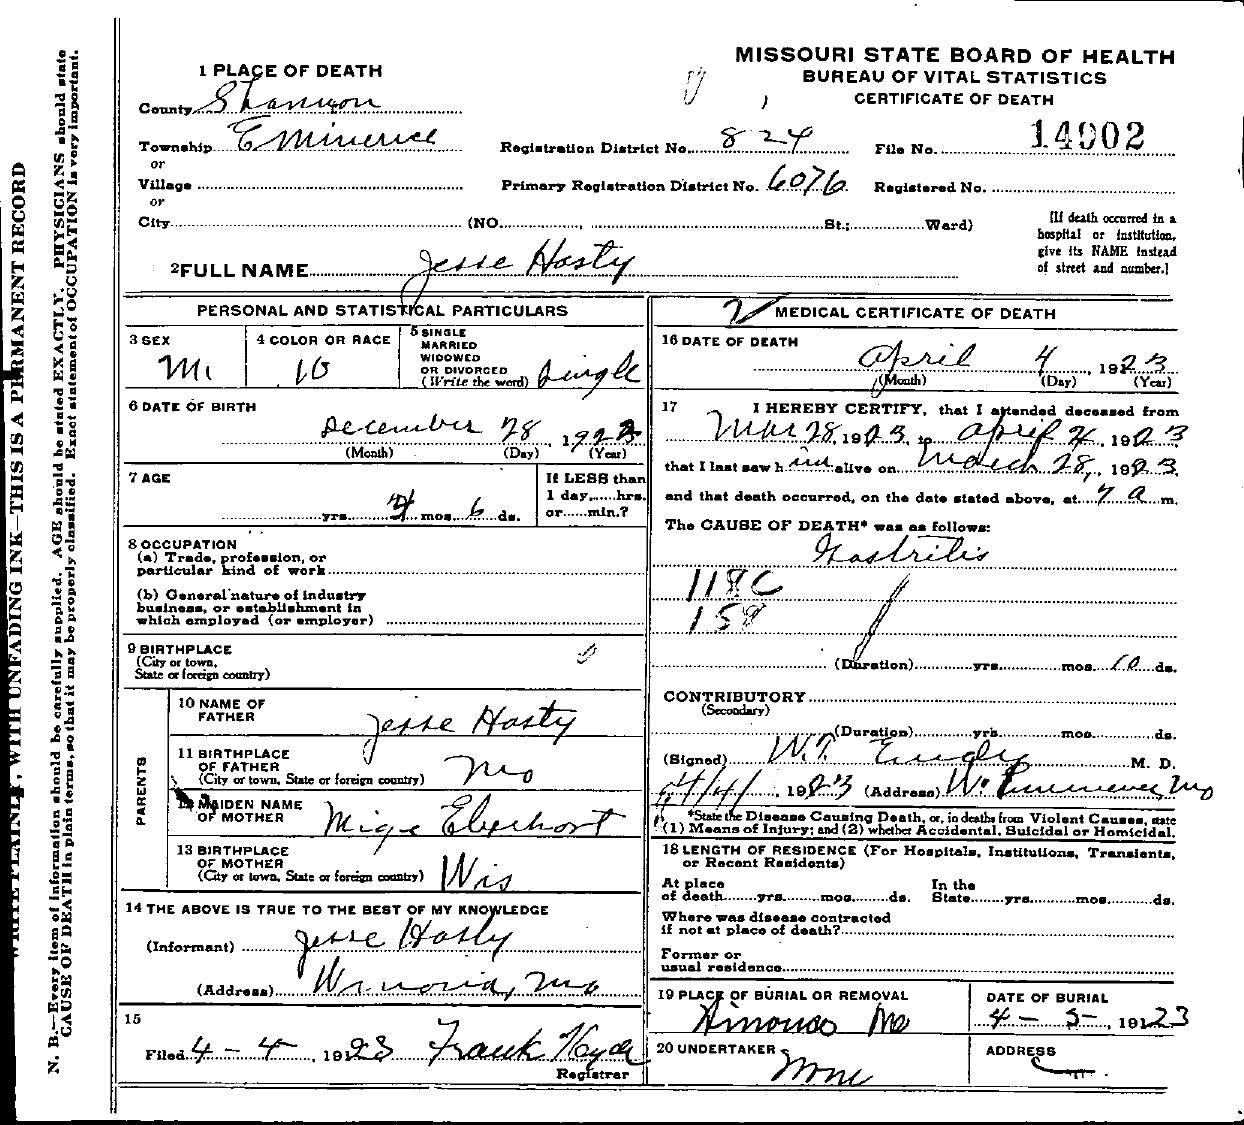 MISSOURI STATE BOARD OF HEALTH
BUREAU OF VITAL STATISTICS
CERTIFICATE OF DEATH
1 PLACE OF DEATH
County Shannon
Township Eminence
or
Village
or
City (NO. , St.; Ward)
Registration District No. 824
File No. 14902
Primary Registration District No. 6076
Registered No.
[If death occurred in a
hospital or institution,
give its NAME instead
of street and number.]
2 FULL NAME Jesse Hasty
PERSONAL AND STATISTICAL PARTICULARS
3 SEX
M.
4 COLOR OR RACE
W
5 SINGLE
MARRIED
WIDOWED
OR DIVORCED
(Write the word) Single
6 DATE OF BIRTH
December 28, 1922
(Month) (Day) (Year)
7 AGE
yrs. mos. 6 ds.
If LESS than
1 day, hrs.
or min.?
8 OCCUPATION
(a) Trade, profession, or
particular kind of work
(b) General nature of industry
business, or establishment in
which employed (or employer)
9 BIRTHPLACE
(City or town,
State or foreign country)
PARENTS
10 NAME OF
FATHER
Jesse Hasty
11 BIRTHPLACE
OF FATHER
(City or town, State or foreign country)
Mo
12 MAIDEN NAME
OF MOTHER
13 BIRTHPLACE
OF MOTHER
(City or town, State or foreign country)
Wis
14 THE ABOVE IS TRUE TO THE BEST OF MY KNOWLEDGE
(Informant) Jesse Hasty
(Address) Winona, Mo
15
Filed 4-4, 1923 Frank Hyde
Registrar
2 MEDICAL CERTIFICATE OF DEATH
16 DATE OF DEATH
April 4, 1923
(Month) (Day) (Year)
17 I HEREBY CERTIFY, that I attended deceased from
Mar 28, 1923, to April 4, 1923
that I last saw him alive on March 28, 1923,
and that death occurred, on the date stated above, at 7 a m.
The CAUSE OF DEATH* was as follows:
Gastritis
118C
159
(Duration) yrs. mos. 10 ds.
CONTRIBUTORY
(Secondary)
(Duration) yrs. mos. ds.
(Signed) W.T. Eudy M. D.
4/4/, 1923 (Address)
*State the Disease Causing Death, or, in deaths from Violent Causes, state
(1) Means of Injury; and (2) whether Accidental, Suicidal or Homicidal.
18 LENGTH OF RESIDENCE (For Hospitals, Institutions, Transients,
or Recent Residents)
At place
of death yrs. mos. ds.
In the
State yrs. mos. ds.
Where was disease contracted
if not at place of death?
Former or
usual residence
19 PLACE OF BURIAL OR REMOVAL
Mo
DATE OF BURIAL
4-5-, 1923
20 UNDERTAKER
None
ADDRESS
N. B.—Every item of information should be carefully supplied. AGE should be stated EXACTLY. PHYSICIANS should state
CAUSE OF DEATH in plain terms, so that it may be properly classified. Exact statement of OCCUPATION is very important.
WRITE PLAINLY, WITH UNFADING INK—THIS IS A PERMANENT RECORD